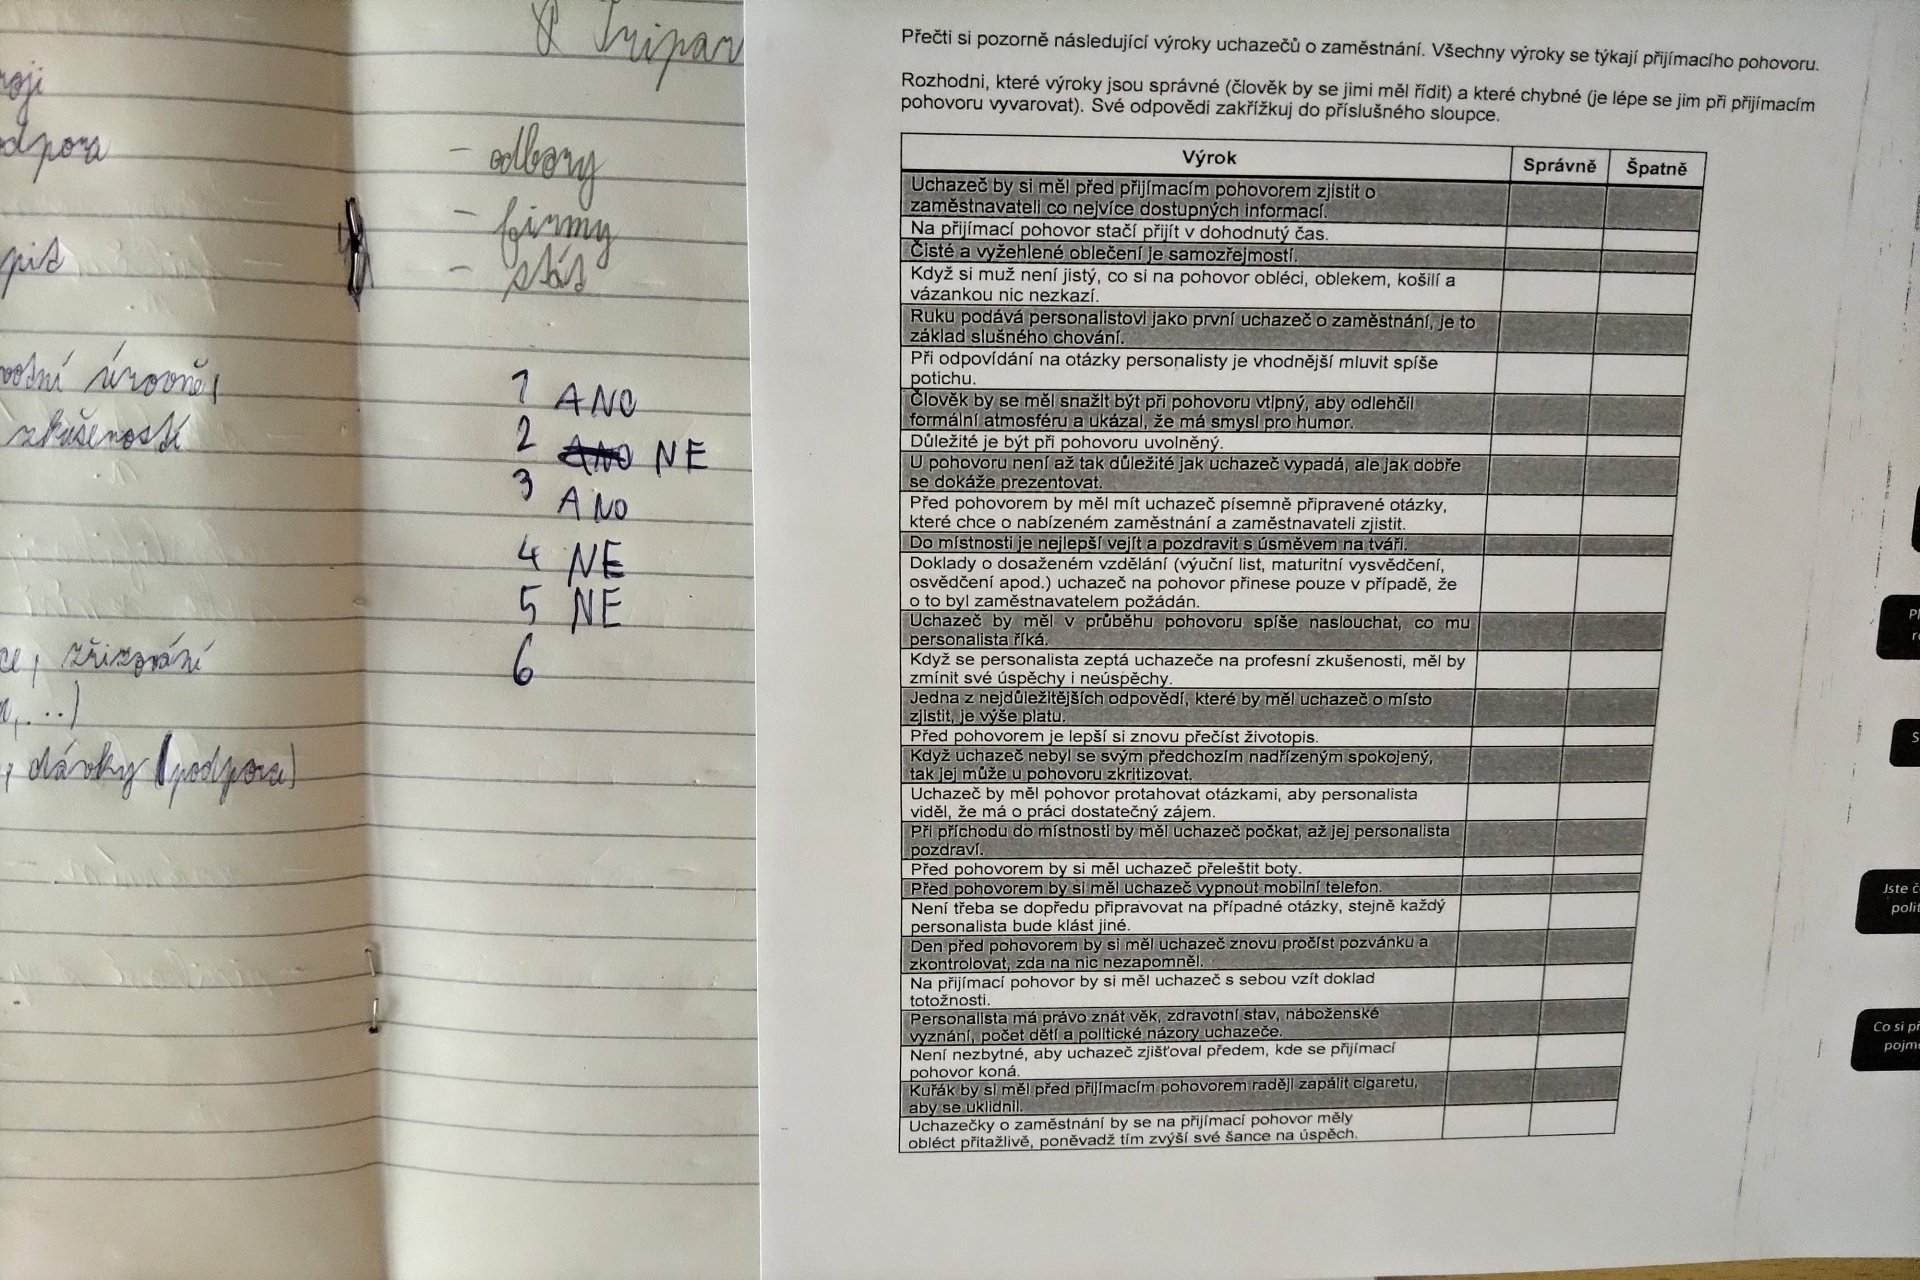 odpora
vodní úrovně,
zkušeností
zřizování
, dávky (podpora)
& Tripar
- odbory
- firmy
- stát
1 ANO
2 ANO NE
3 ANO
4 NE
5 NE
6
Přečti si pozorně následující výroky uchazečů o zaměstnání. Všechny výroky se týkají přijímacího pohovoru.
Rozhodni, které výroky jsou správné (člověk by se jimi měl řídit) a které chybné (je lépe se jim při přijímacím
pohovoru vyvarovat). Své odpovědi zakřížkuj do příslušného sloupce.
Výrok Správně Špatně
Uchazeč by si měl před přijímacím pohovorem zjistit o
zaměstnavateli co nejvíce dostupných informací.
Na přijímací pohovor stačí přijít v dohodnutý čas.
Čisté a vyžehlené oblečení je samozřejmostí.
Když si muž není jistý, co si na pohovor obléci, oblekem, košilí a
vázankou nic nezkazí.
Ruku podává personalistovi jako první uchazeč o zaměstnání, je to
základ slušného chování.
Při odpovídání na otázky personalisty je vhodnější mluvit spíše
potichu.
Člověk by se měl snažit být při pohovoru vtipný, aby odlehčil
formální atmosféru a ukázal, že má smysl pro humor.
Důležité je být při pohovoru uvolněný.
U pohovoru není až tak důležité jak uchazeč vypadá, ale jak dobře
se dokáže prezentovat.
Před pohovorem by měl mít uchazeč písemně připravené otázky,
které chce o nabízeném zaměstnání a zaměstnavateli zjistit.
Do místnosti je nejlepší vejít a pozdravit s úsměvem na tváři.
Doklady o dosaženém vzdělání (výuční list, maturitní vysvědčení,
osvědčení apod.) uchazeč na pohovor přinese pouze v případě, že
o to byl zaměstnavatelem požádán.
Uchazeč by měl v průběhu pohovoru spíše naslouchat, co mu
personalista říká.
Když se personalista zeptá uchazeče na profesní zkušenosti, měl by
zmínit své úspěchy i neúspěchy.
Jedna z nejdůležitějších odpovědí, které by měl uchazeč o místo
zjistit, je výše platu.
Před pohovorem je lepší si znovu přečíst životopis.
Když uchazeč nebyl se svým předchozím nadřízeným spokojený,
tak jej může u pohovoru zkritizovat.
Uchazeč by měl pohovor protahovat otázkami, aby personalista
viděl, že má o práci dostatečný zájem.
Při příchodu do místnosti by měl uchazeč počkat, až jej personalista
pozdraví.
Před pohovorem by si měl uchazeč přeleštit boty.
Před pohovorem by si měl uchazeč vypnout mobilní telefon.
Není třeba se dopředu připravovat na případné otázky, stejně každý
personalista bude klást jiné.
Den před pohovorem by si měl uchazeč znovu pročíst pozvánku a
zkontrolovat, zda na nic nezapomněl.
Na přijímací pohovor by si měl uchazeč s sebou vzít doklad
totožnosti.
Personalista má právo znát věk, zdravotní stav, náboženské
vyznání, počet dětí a politické názory uchazeče.
Není nezbytné, aby uchazeč zjišťoval předem, kde se přijímací
pohovor koná.
Kuřák by si měl před přijímacím pohovorem raději zapálit cigaretu,
aby se uklidnil.
Uchazečky o zaměstnání by se na přijímací pohovor měly
obléct přitažlivě, poněvadž tím zvýší své šance na úspěch.
Jste č
polit
Co si př
pojm